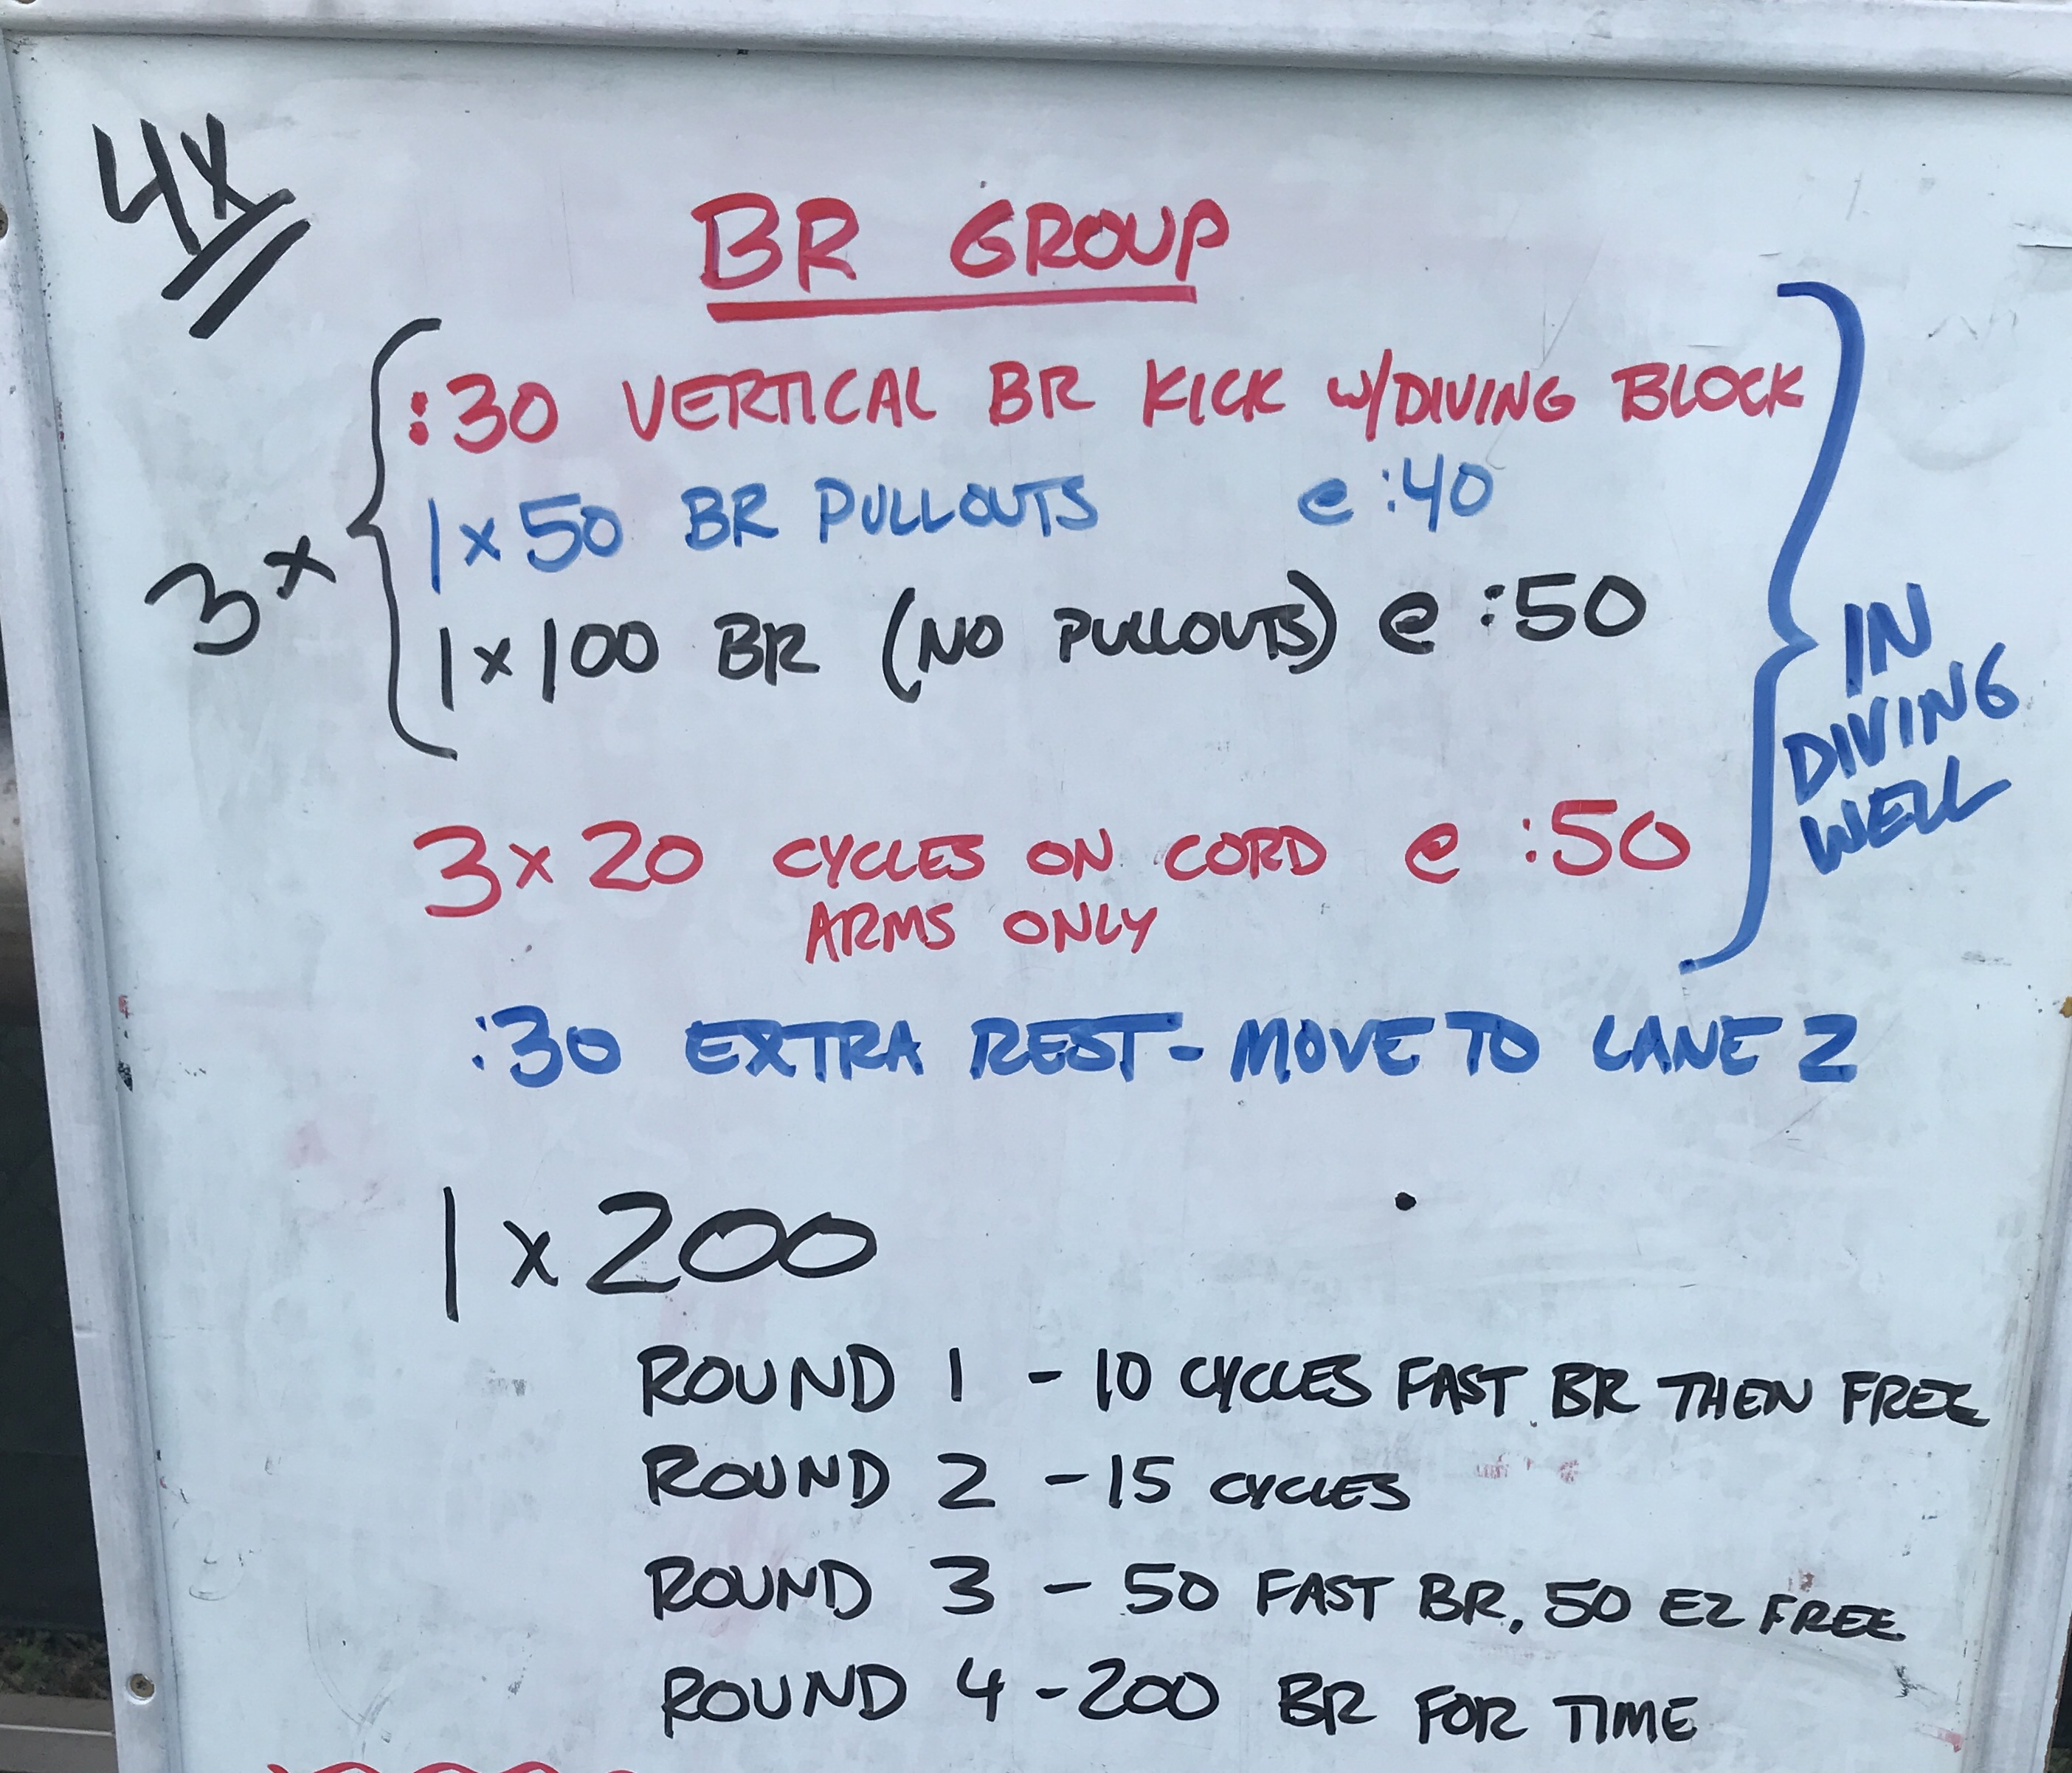 4X
BR GROUP
3x
:30 VERTICAL BR KICK w/DIVING BLOCK
1x50 BR PULLOUTS @ :40
1x100 BR (NO PULLOUTS) @ :50
3x20 CYCLES ON CORD @ :50
ARMS ONLY
IN
DIVING
WELL
:30 EXTRA REST - MOVE TO LANE 2
1x200
ROUND 1 - 10 CYCLES FAST BR THEN FREE
ROUND 2 - 15 CYCLES
ROUND 3 - 50 FAST BR, 50 EZ FREE
ROUND 4 - 200 BR FOR TIME